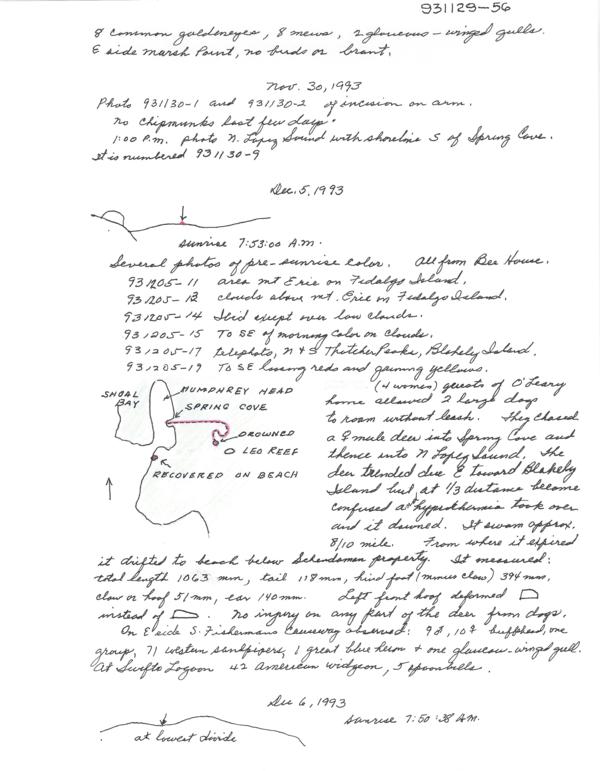 931129-56
8 common goldeneyes, 8 mews, 2 glaucous-winged gulls.
E side Marsh Point, no birds or brant.
Nov. 30, 1993
Photo 931130-1 and 931130-2 of incision on arm.
No chipmunks last few days.
1:00 P.M. photo N. Lopez Sound with shoreline S of Spring Cove.
It is numbered 931130-9
Dec. 5, 1993
sunrise 7:53:00 A.M.
Several photos of pre-sunrise color. All from Bee House.
931205-11 area Mt Erie on Fidalgo Island.
931205-12 clouds above Mt. Erie on Fidalgo Island.
931205-14 Ibid except over low clouds.
931205-15 To SE of morning color on clouds.
931205-17 telephoto, N & S Thatcher Peaks, Blakely Island.
931205-19 To SE losing reds and gaining yellows.
SHOAL BAY
HUMPHREY HEAD
SPRING COVE
DROWNED
LEO REEF
RECOVERED ON BEACH
(4 women) guests of O'Leary
home allowed 2 large dogs
to roam without leash. They chased
a ♀ mule deer into Spring Cove and
thence into N Lopez Sound. The
deer trended due E toward Blakely
Island but at 1/3 distance became
confused as hypothermia took over
and it drowned. It swam approx.
8/10 mile. From where it expired
it drifted to beach below property. It measured:
total length 1063 mm, tail 118 mm, hind foot (minus claw) 394 mm,
claw or hoof 51 mm, ear 140 mm. Left front hoof deformed
instead of . No injury on any part of the deer from dogs.
On E side S. Fishermans Causeway observed: 9♂, 10♀ bufflehead, one
group, 71 western sandpipers, 1 great blue heron + one glaucous-winged gull.
At Swifts Lagoon 42 American widgeon, 5 spoonbills.
Dec 6, 1993
sunrise 7:50:38 A.M.
at lowest divide